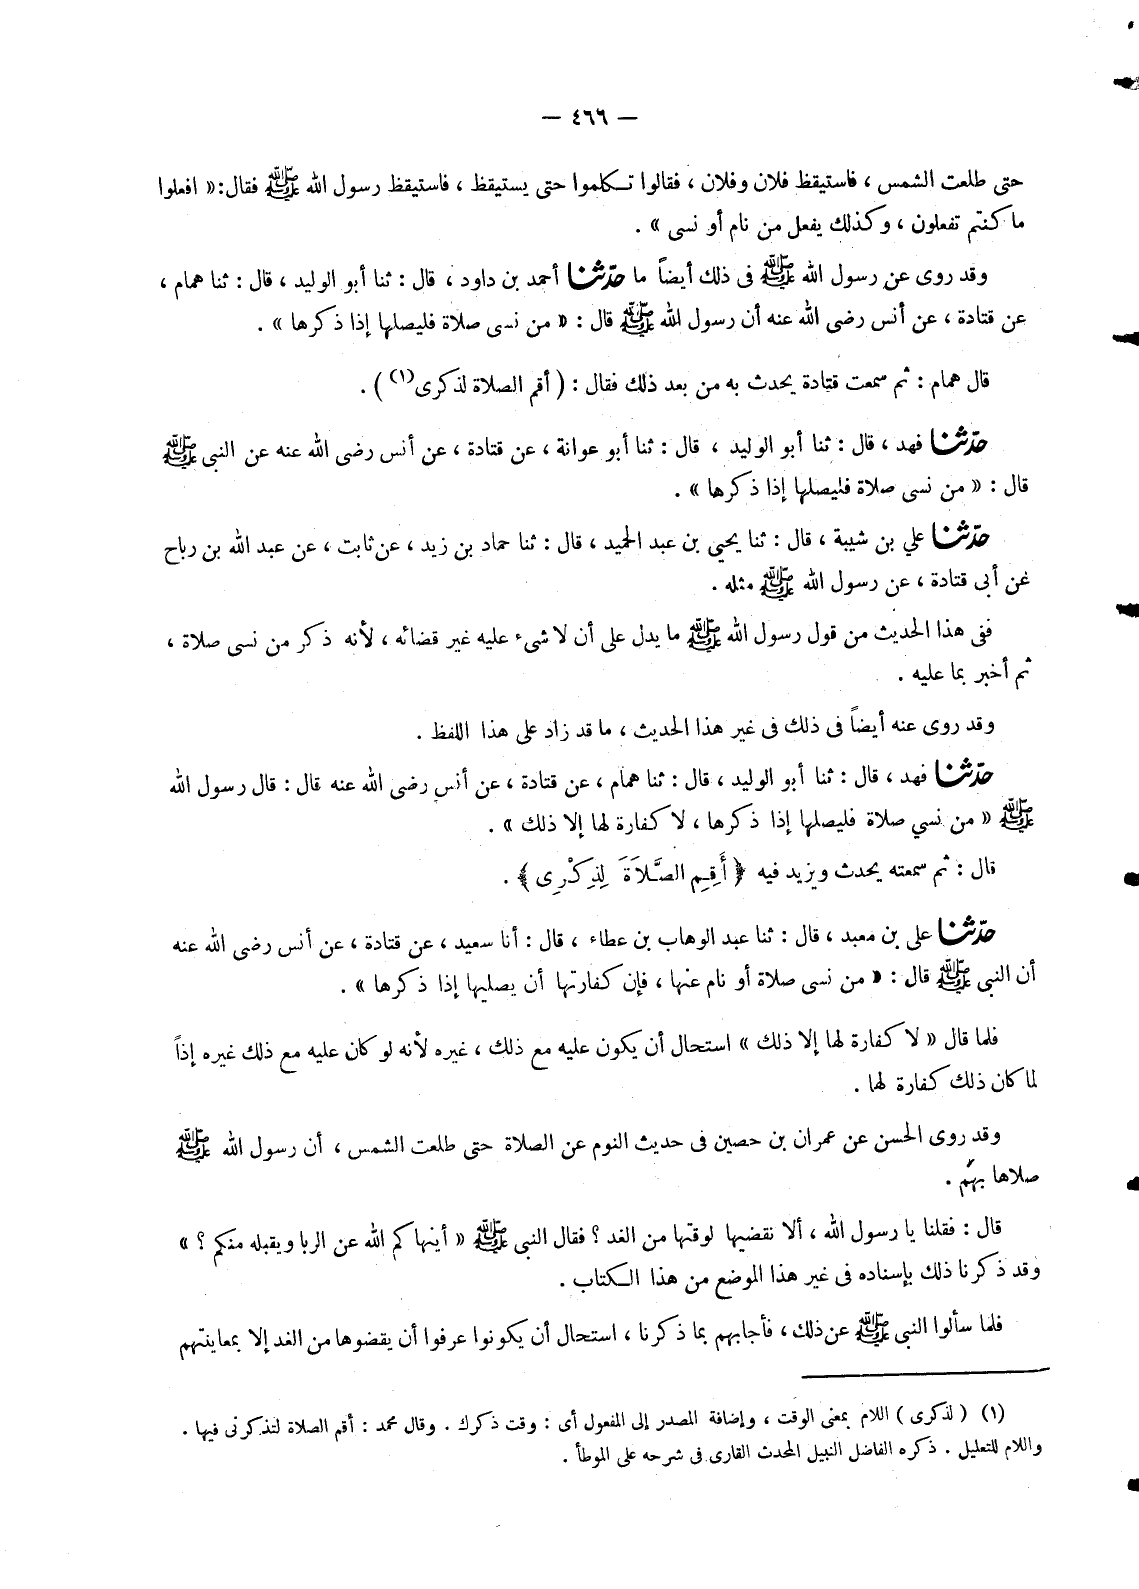 — ٤٦٦ —
حتى طلعت الشمس ، فاستيقظ فلان وفلان ، فقالوا تـكلموا حتى يستيقظ ، فاستيقظ رسول الله ﷺ فقال: « افعلوا
ما كنتم تفعلون ، وكذلك يفعل من نام أو نسى » .
وقد روى عن رسول الله ﷺ فى ذلك أيضاً ما حدّثنا أحمد بن داود ، قال : ثنا أبو الوليد ، قال : ثنا همام ،
عن قتادة ، عن أنس رضى الله عنه أن رسول الله ﷺ قال : « من نسى صلاة فليصلها إذا ذكرها » .
قال همام : ثم سمعت قتادة يحدث به من بعد ذلك فقال : ( أقم الصلاة لذكرى(١) ) .
حدّثنا فهد ، قال : ثنا أبو الوليد ، قال : ثنا أبو عوانة ، عن قتادة ، عن أنس رضى الله عنه عن النبى ﷺ
قال : « من نسى صلاة فليصلها إذا ذكرها » .
حدّثنا علي بن شيبة ، قال : ثنا يحيي بن عبد الحميد ، قال : ثنا حماد بن زيد ، عن ثابت ، عن عبد الله بن رباح
عن أبى قتادة ، عن رسول الله ﷺ مثله .
ففى هذا الحديث من قول رسول الله ﷺ ما يدل على أن لا شىء عليه غير قضائه ، لأنه ذكر من نسى صلاة ،
ثم أخبر بما عليه .
وقد روى عنه أيضاً فى ذلك فى غير هذا الحديث ، ما قد زاد على هذا اللفظ .
حدّثنا فهد ، قال : ثنا أبو الوليد ، قال : ثنا همام ، عن قتادة ، عن أنس رضى الله عنه قال : قال رسول الله
ﷺ « من نسي صلاة فليصلها إذا ذكرها ، لا كفارة لها إلا ذلك » .
قال : ثم سمعته يحدث ويزيد فيه ﴿ أَقِمِ الصَّلَاةَ لِذِكْرِى ﴾ .
حدّثنا على بن معبد ، قال : ثنا عبد الوهاب بن عطاء ، قال : أنا سعيد ، عن قتادة ، عن أنس رضى الله عنه
أن النبى ﷺ قال : « من نسى صلاة أو نام عنها ، فإن كفارتها أن يصليها إذا ذكرها » .
فلما قال « لا كفارة لها إلا ذلك » استحال أن يكون عليه مع ذلك ، غيره لأنه لو كان عليه مع ذلك غيره إذاً
لما كان ذلك كفارة لها .
وقد روى الحسن عن عمران بن حصين فى حديث النوم عن الصلاة حتى طلعت الشمس ، أن رسول الله ﷺ
صلاها بهم .
قال : فقلنا يا رسول الله ، ألا نقضيها لوقتها من الغد ؟ فقال النبى ﷺ « أينهاكم الله عن الربا ويقبله منكم ؟ »
وقد ذكرنا ذلك بإسناده فى غير هذا الموضع من هذا الـكتاب .
فلما سألوا النبى ﷺ عن ذلك ، فأجابهم بما ذكرنا ، استحال أن يكونوا عرفوا أن يقضوها من الغد إلا بمعاينتهم
(١) ( لذكرى ) اللام بمعنى الوقت ، وإضافة المصدر إلى المفعول أى : وقت ذكرك . وقال محمد : أقم الصلاة لتذكرنى فيها .
واللام للتعليل . ذكره الفاضل النبيل المحدث القارى فى شرحه على الموطأ .